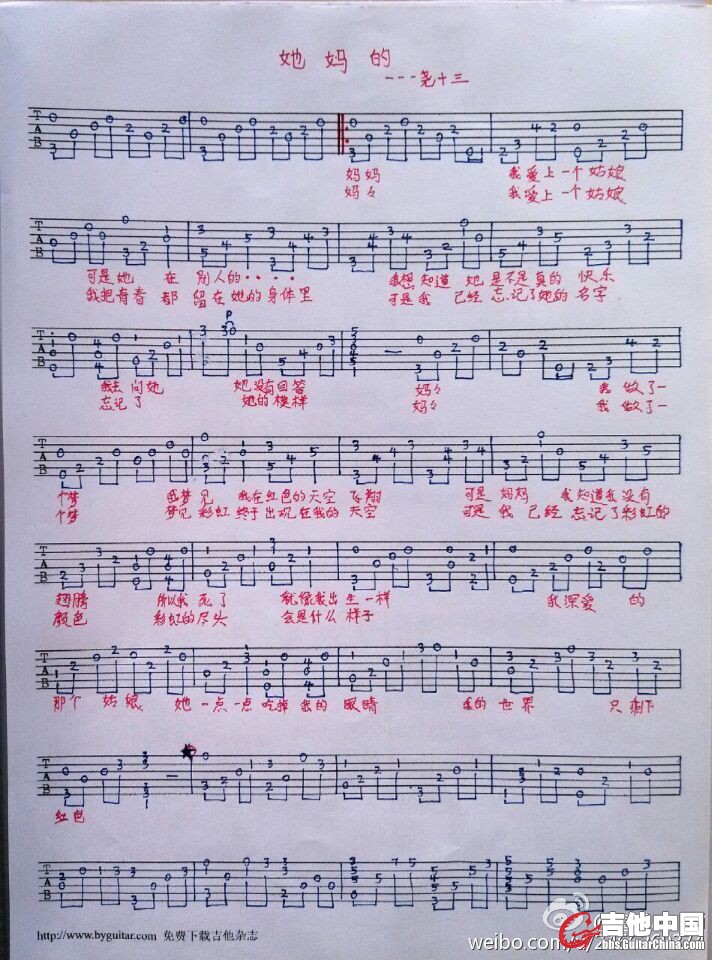 她妈的
---尧十三
妈妈 我爱上一个姑娘
妈々 我爱上一个姑娘
可是她 在 别人的····· 我想知道 她是不是真的 快乐
我把青春 都 留在她的身体里 可是我 已经 忘记了她的 名字
我去问她 她没有回答 妈々 我做了一
忘记了 她的模样 妈々 我做了一
个梦 我梦见 我在红色的天空 飞翔 可是 妈妈 我知道我没有
个梦 梦见彩虹 终于出现在我的 天空 可是 我 已经 忘记了彩虹的
翅膀 所以我 死了 就像我出生一样
颜色 彩虹的尽头 会是什么 样子 我深爱 的
那个 姑娘 她一点一点 吃掉 我的 眼睛 我的 世界 只剩下
红色
http://www.byguitar.com 免费下载吉他杂志
吉他中国
bbs.GuitarChina.com
weibo.com/